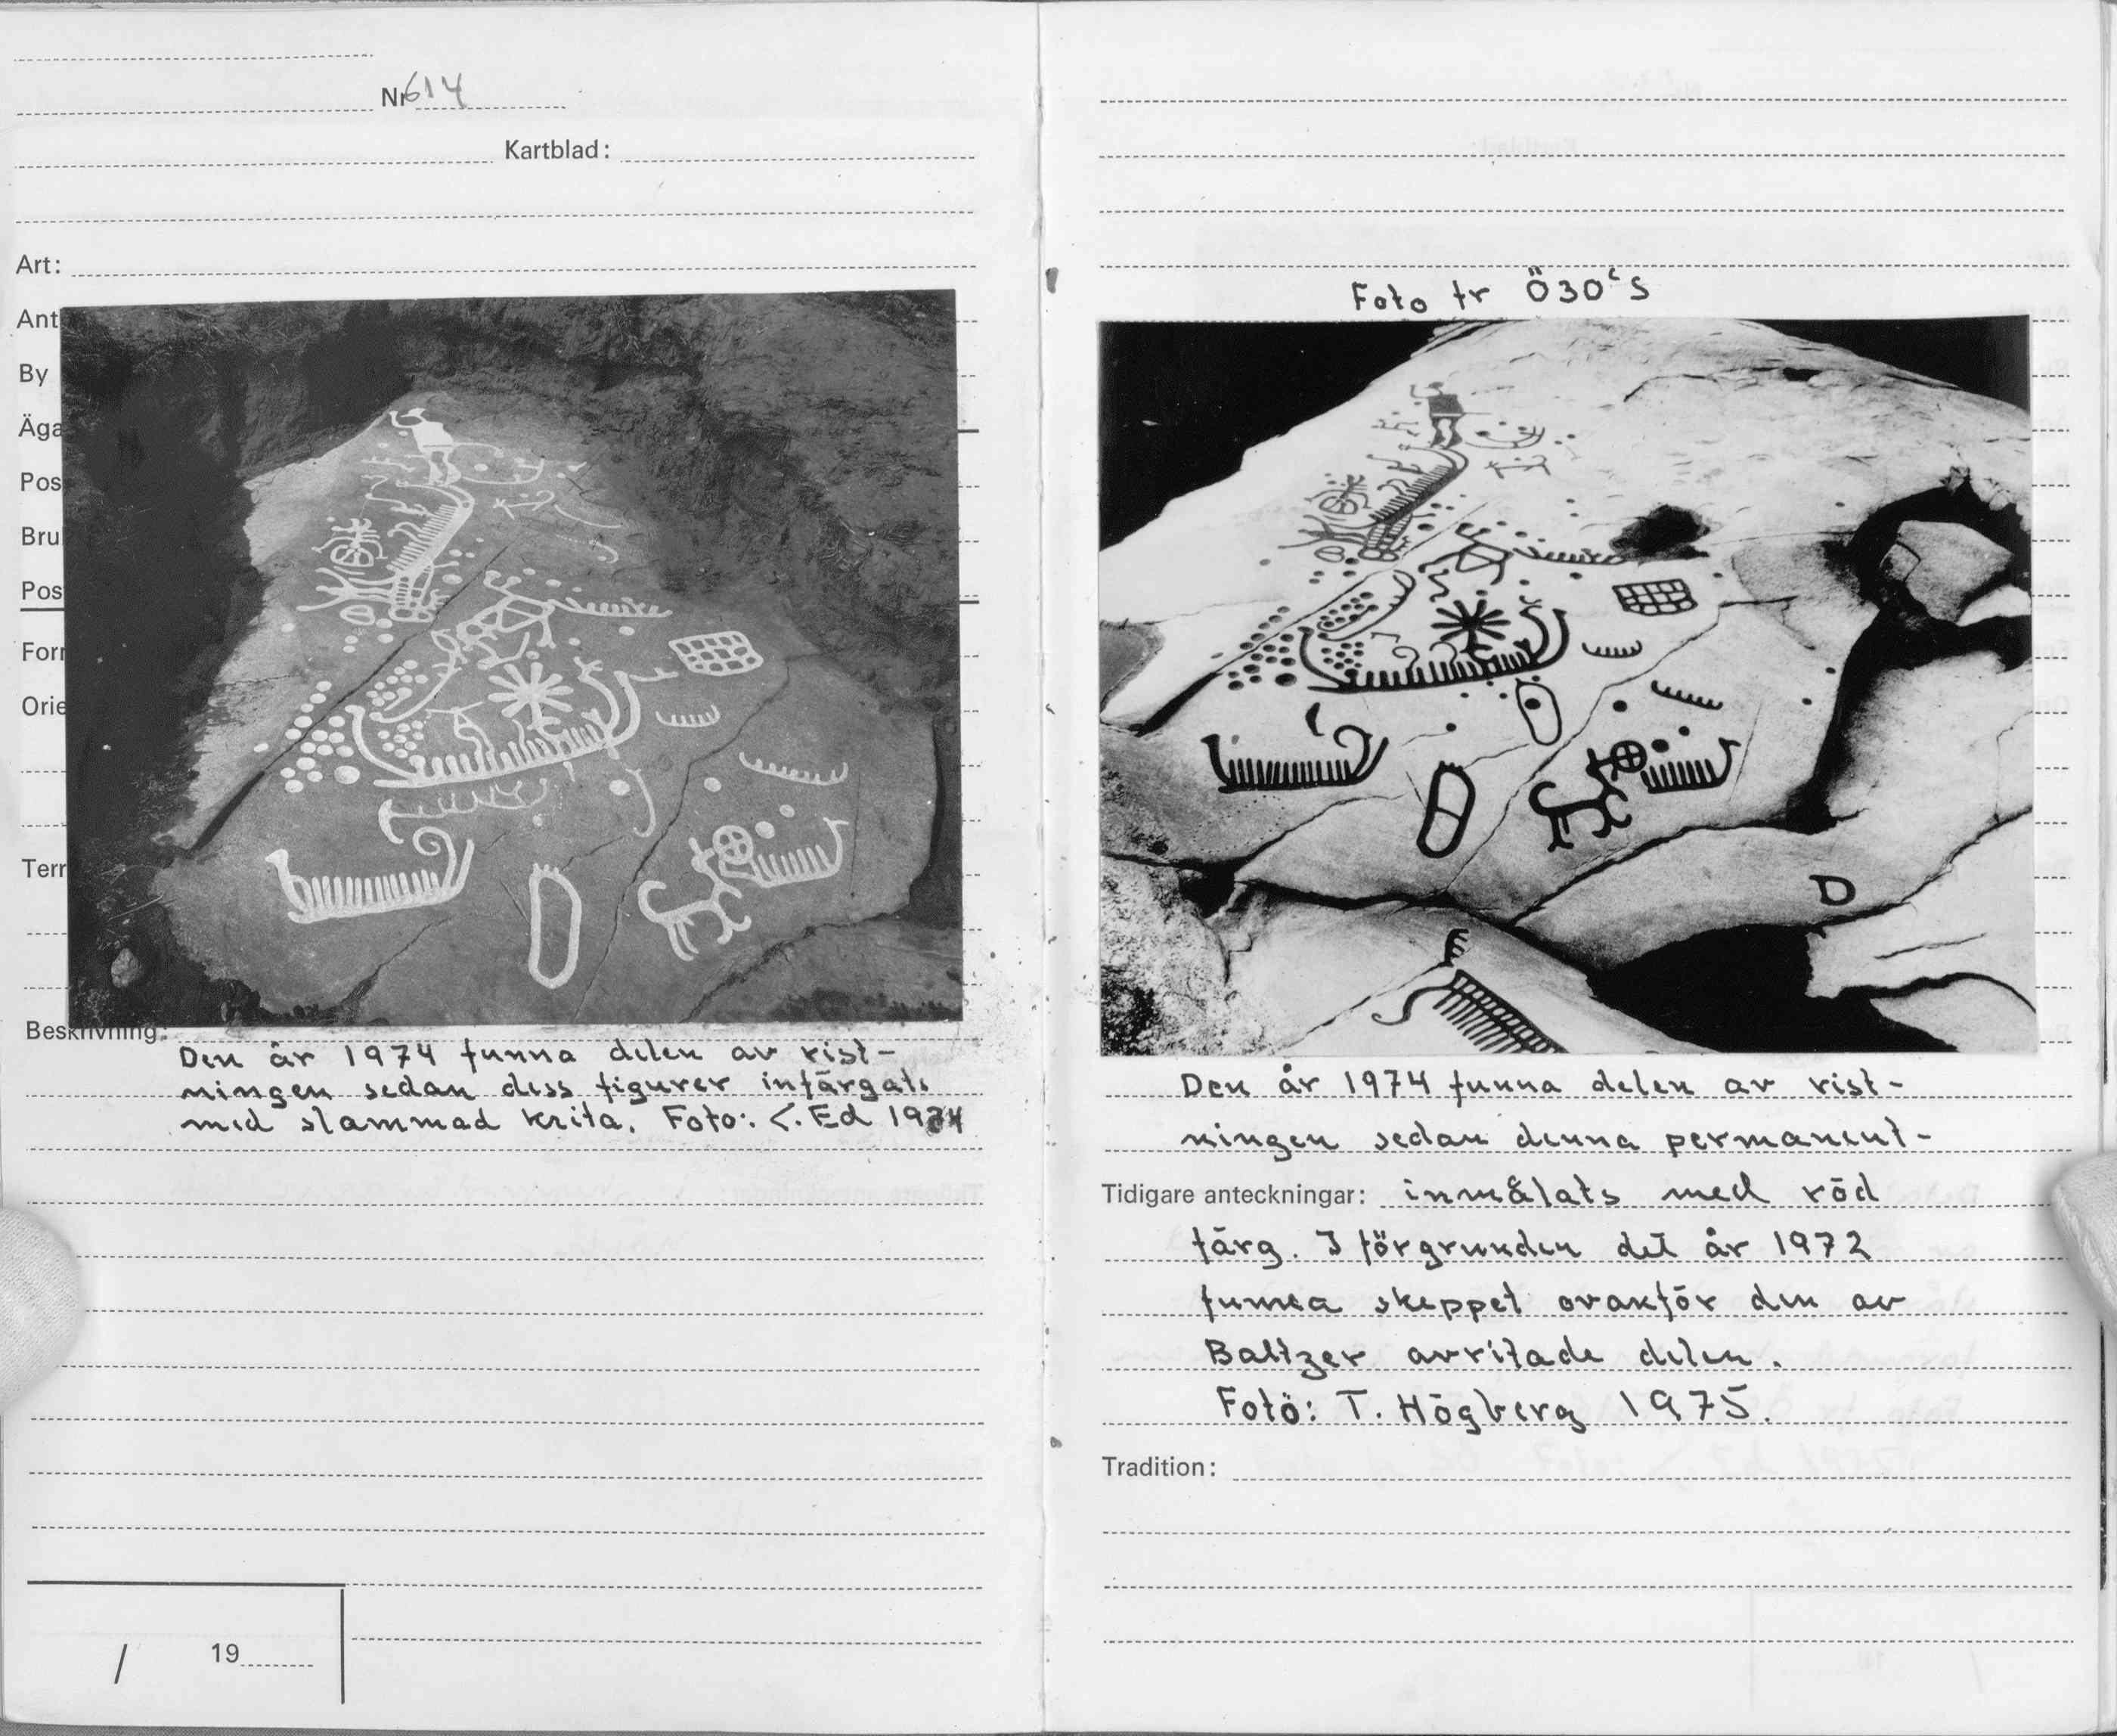 Nr 614
Kartblad:
Art:
Ant
By
Äga
Pos
Bru
Pos
Forr
Orie
Terr
Beskrivning:
Den år 1974 funna delen av rist-
ningen sedan dess figurer infärgats
med slammad krita. Foto: Ed 1974
/ 19
Foto fr Ö30ᶜS
Den år 1974 funna delen av rist-
ningen sedan denna permanent-
Tidigare anteckningar: inmålats med röd
färg. I förgrunden det år 1972
funna skeppet ovanför den av
Baltzer avritade delen.
Foto: T. Högberg 1975.
Tradition: